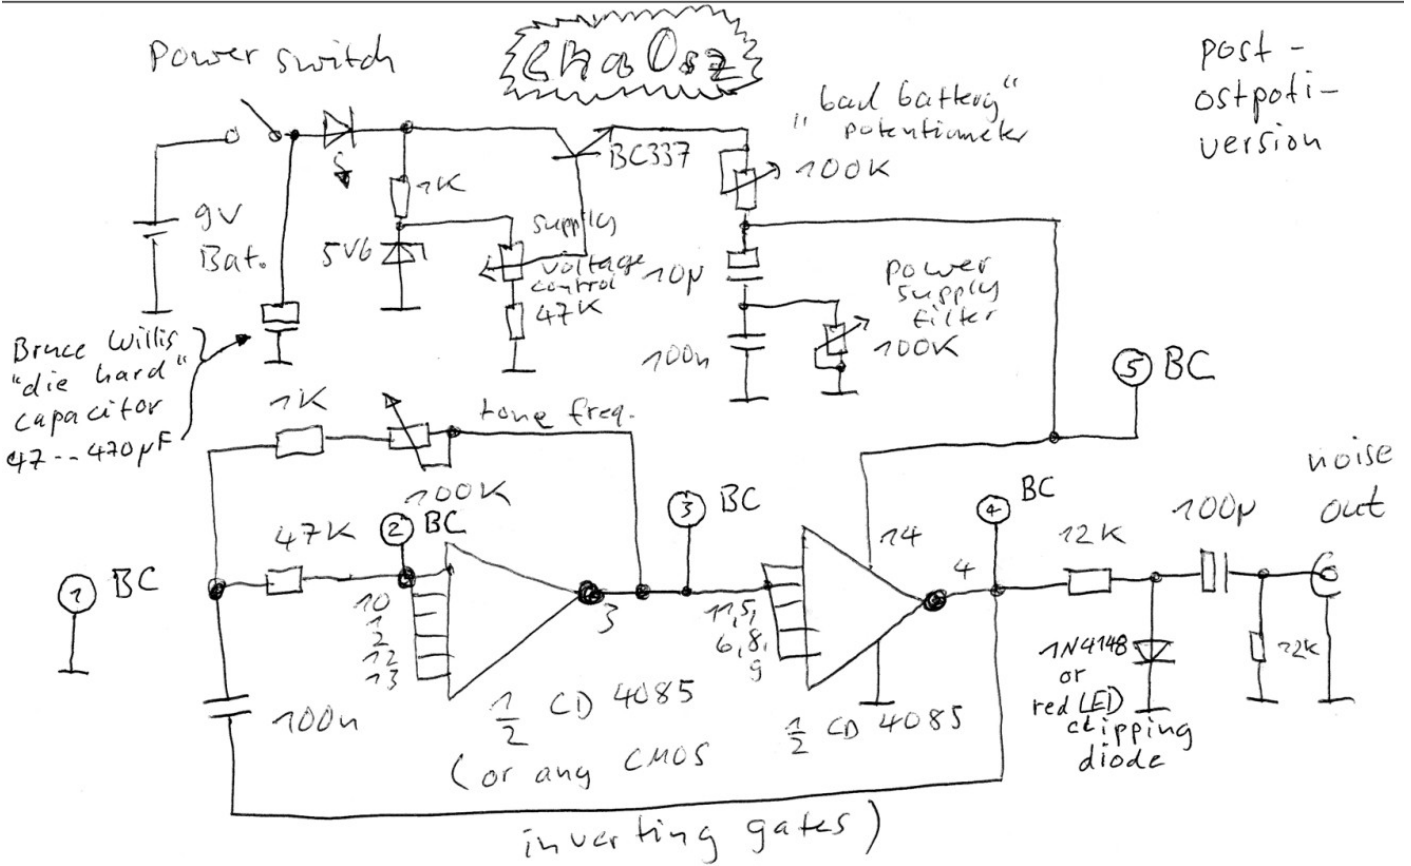 Power switch
ChaOsz
post-
ostpoti-
version
"bad battery"
potentiometer
100K
BC337
1K
9V
Bat.
5V6
supply
voltage
control
47K
10µ
100n
power
supply
filter
100K
Bruce Willis
"die hard"
capacitor
47--470µF
1K
tone freq.
100K
5 BC
1 BC
47K
2 BC
3 BC
4 BC
10
1
2
12
13
3
11,5,
6,8,
9
14
4
12K
100µ
noise
out
1N4148
or
red LED
clipping
diode
100n
1/2 CD 4085
1/2 CD 4085
(or any CMOS
inverting gates)